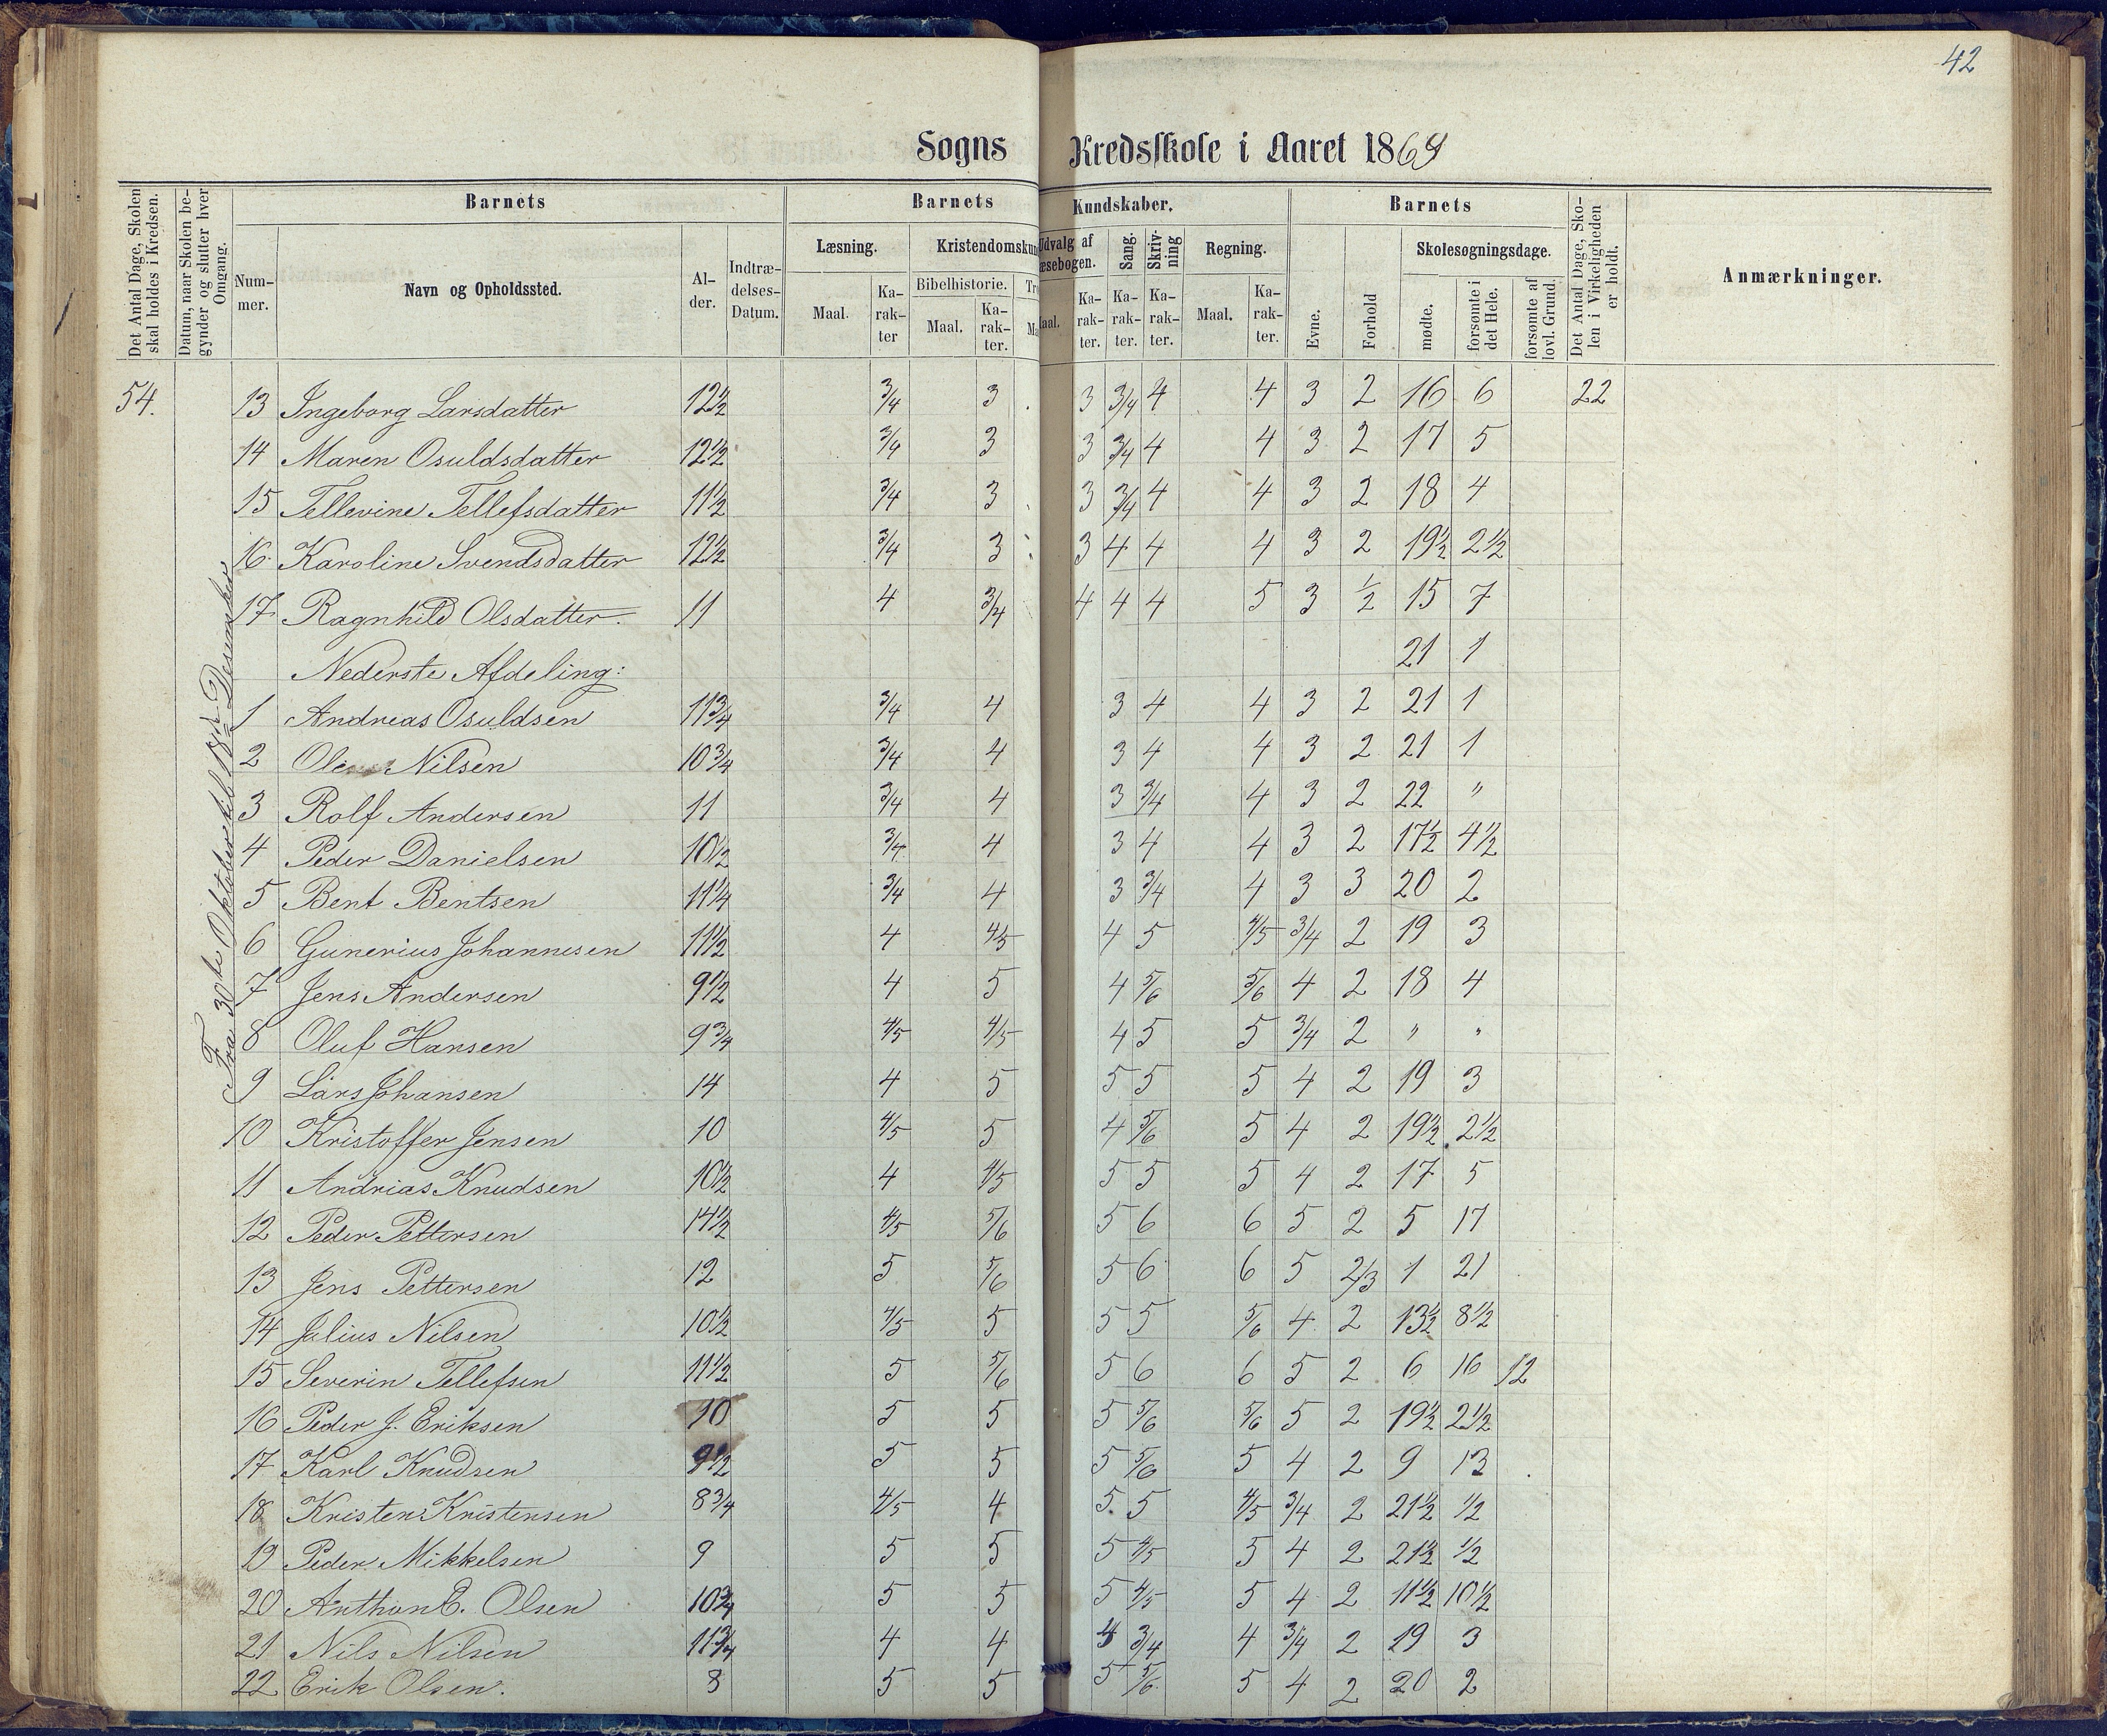 42
Sogns Kredsskole i Aaret 1869
Det Antal Dage, Skolen skal holdes i Kredsen.
Datum, naar Skolen begynder og slutter hver Omgang.
Barnets Barnets Kundskaber. Barnets
Det Antal Dage, Skolen i Virkeligheden er holdt.
Anmærkninger.
Nummer. Navn og Opholdssted. Alder. Indtrædelses-Datum.
Læsning. Kristendomskun Udvalg af æsebogen. Sang. Skrivning Regning. Evne. Forhold Skolesøgningsdage.
Maal. Karakter Bibelhistorie. Maal. Karakter. Tro Ma aal. Karakter. Karakter. Karakter. Maal. Karakter. mødte. forsømte i det Hele. forsømte af lovl. Grund.
Fra 30te Oktober til 18de Desember
54. 13 Ingeborg Larsdatter 12½ 3/4 3 3 3/4 4 4 3 2 16 6 22
14 Maren Osuldsdatter 12½ 3/4 3 3 3/4 4 4 3 2 17 5
15 Tellevine Tellefsdatter 11½ 3/4 3 3 3/4 4 4 3 2 18 4
16 Karoline Svendsdatter 12½ 3/4 3 3 4 4 4 3 2 19½ 2½
17 Ragnhild Olsdatter. 11 4 3/4 4 4 4 5 3 ½ 15 7
Nederste Afdeling: 21 1
1 Andreas Osuldsen 11¾ 3/4 4 3 4 4 3 2 21 1
2 Ole Nilsen 10¾ 3/4 4 3 4 4 3 2 21 1
3 Rolf Andersen 11 3/4 4 3 3/4 4 3 2 22 "
4 Peder Danielsen 10½ 3/4 4 3 4 4 3 2 17½ 4½
5 Bent Bentsen 11¼ 3/4 4 3 3/4 4 3 3 20 2
6 Gunerius Johannesen 11½ 4 4/5 4 5 4/5 3/4 2 19 3
7 Jens Andersen 9½ 4 5 4 5/6 5/6 4 2 18 4
8 Oluf Hansen 9¾ 4/5 4/5 4 5 5 3/4 2 " "
9 Lars Johansen 14 4 5 5 5 5 4 2 19 3
10 Kristoffer Jensen 10 4/5 5 4 5/6 5 4 2 19½ 2½
11 Andrias Knudsen 10½ 4 4/5 5 5 5 4 2 17 5
12 Peder Pettersen 14½ 4/5 5/6 5 6 6 5 2 5 17
13 Jens Pettersen 12 5 5/6 5 6 6 5 2/3 1 21
14 Julius Nilsen 10½ 4/5 5 5 5 5/6 4 2 13½ 8½
15 Severin Tellefsen 11½ 5 5/6 5 6 6 5 2 6 16 12
16 Peder J. Eriksen 10 5 5 5 5/6 5/6 5 2 19½ 2½
17 Karl Knudsen 9½ 5 5 5 5/6 5 4 2 9 13
18 Kristen Kristensen 8¾ 4/5 4 5 5 4/5 3/4 2 21½ ½
19 Peder Mikkelsen 9 5 5 5 4/5 5 4 2 21½ ½
20 Anthon E. Olsen 10¾ 5 5 5 4/5 5 4 2 11½ 10½
21 Nils Nilsen 11¾ 4 4 4 3/4 4 3/4 2 19 3
22 Erik Olsen. 8 5 5 5 5/6 5 4 2 20 2